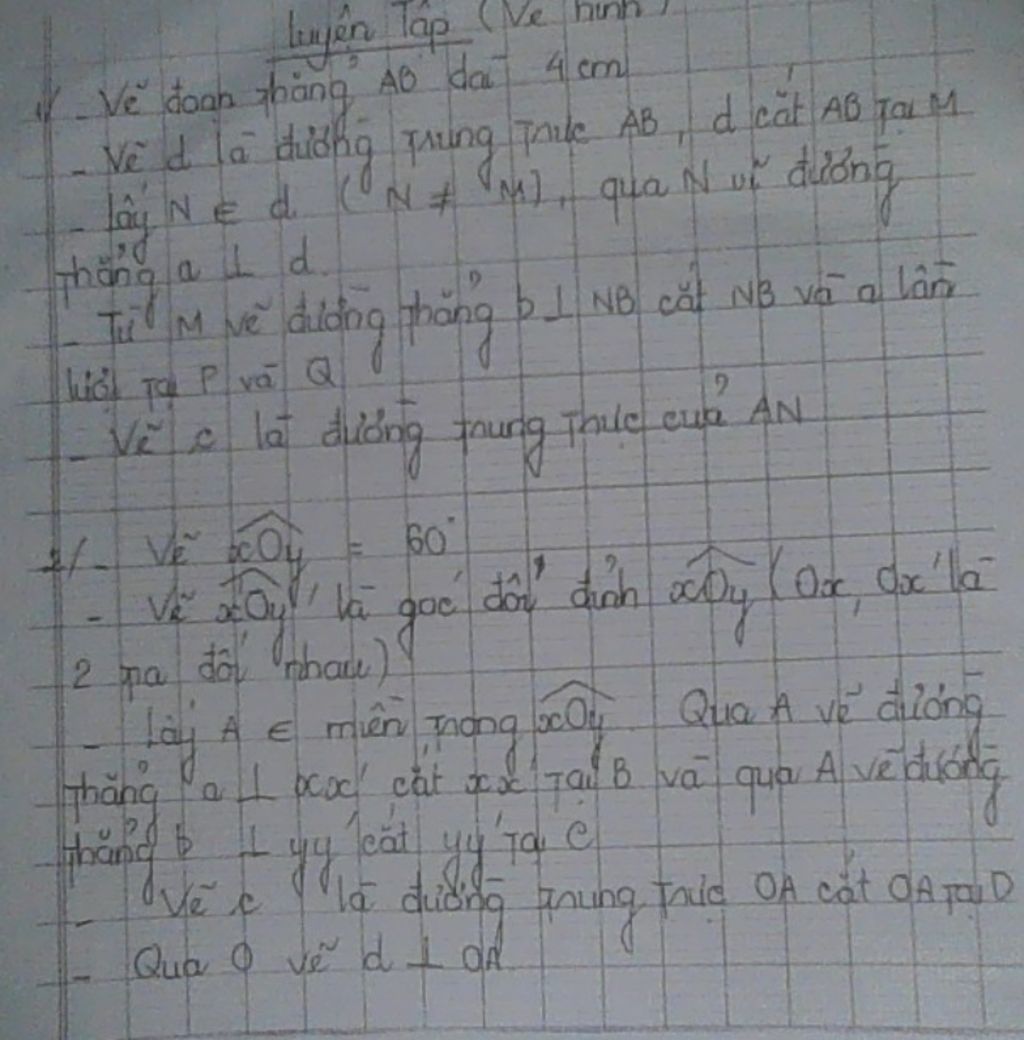 Luyện Tập (Vẽ hình)
1/ - Vẽ đoạn thẳng AB dài 4 cm
- Vẽ d là đường trung trực AB, d cắt AB tại M
- lấy N ∈ d (N ≠ M), qua N vẽ đường
thẳng a ⊥ d.
- Từ M vẽ đường thẳng b ⊥ NB cắt NB và a lần
lượt tại P và Q
- Vẽ c là đường trung trực của AN
2/ - Vẽ xOy = 60°
- Vẽ x'Oy' là góc đối đỉnh xOy (Ox, Ox' là
2 tia đối nhau)
- Lấy A ∈ miền trong xOy Qua A vẽ đường
thẳng a ⊥ xx' cắt xx' tại B và qua A vẽ đường
thẳng b ⊥ yy' cắt yy' tại C
- Vẽ c là đường trung trực OA cắt OA tại D
- Qua O vẽ d ⊥ OA